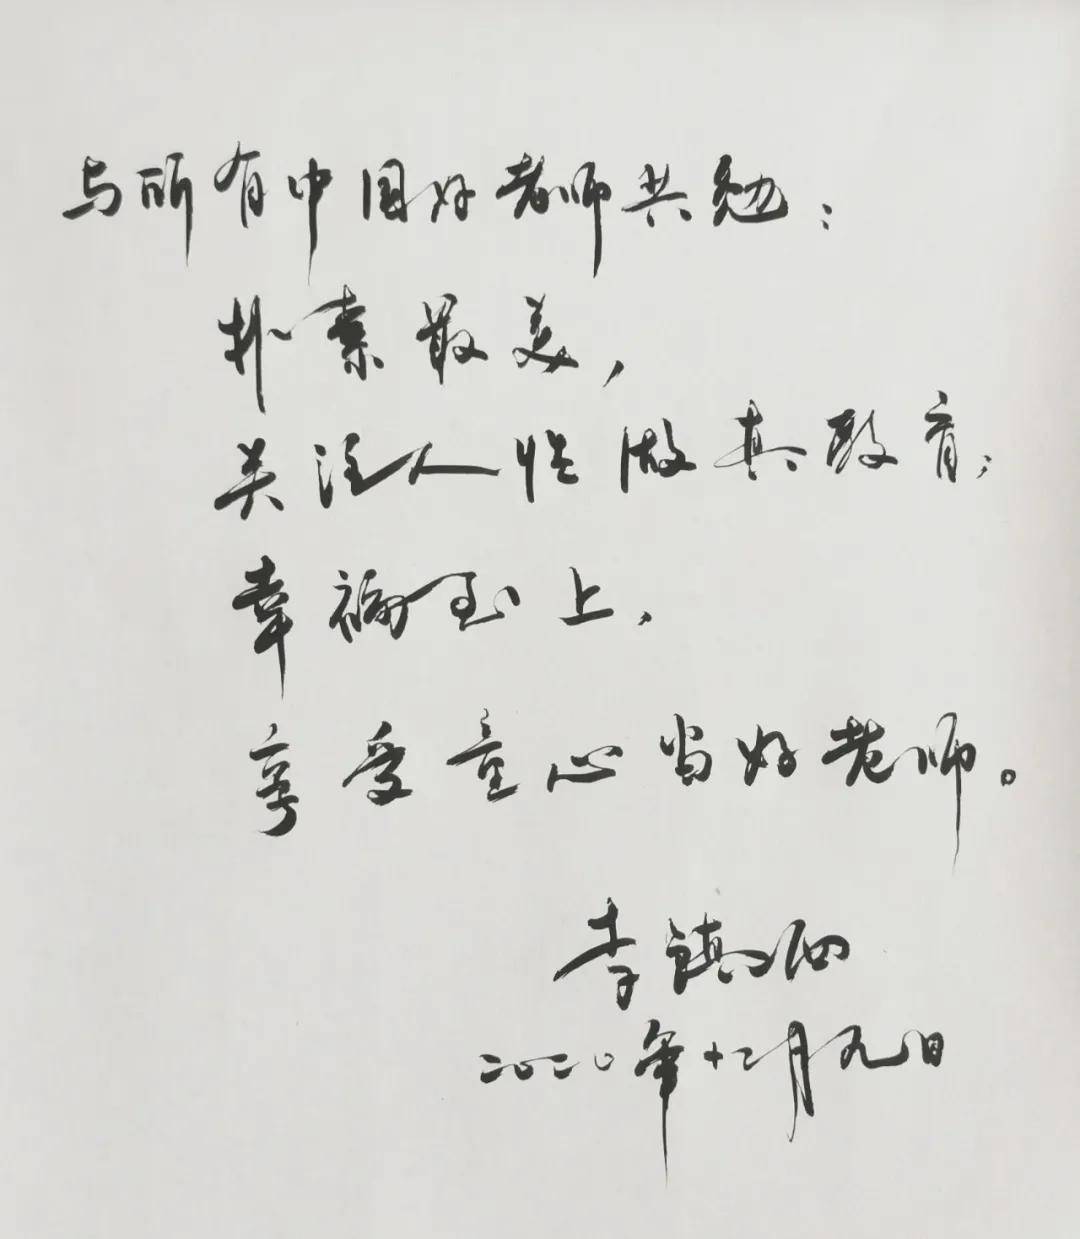 与所有中国好老师共勉：
朴素最美，
关注人性做真教育；
幸福至上，
享受童心当好老师。
李镇西
二〇二〇年十二月九日